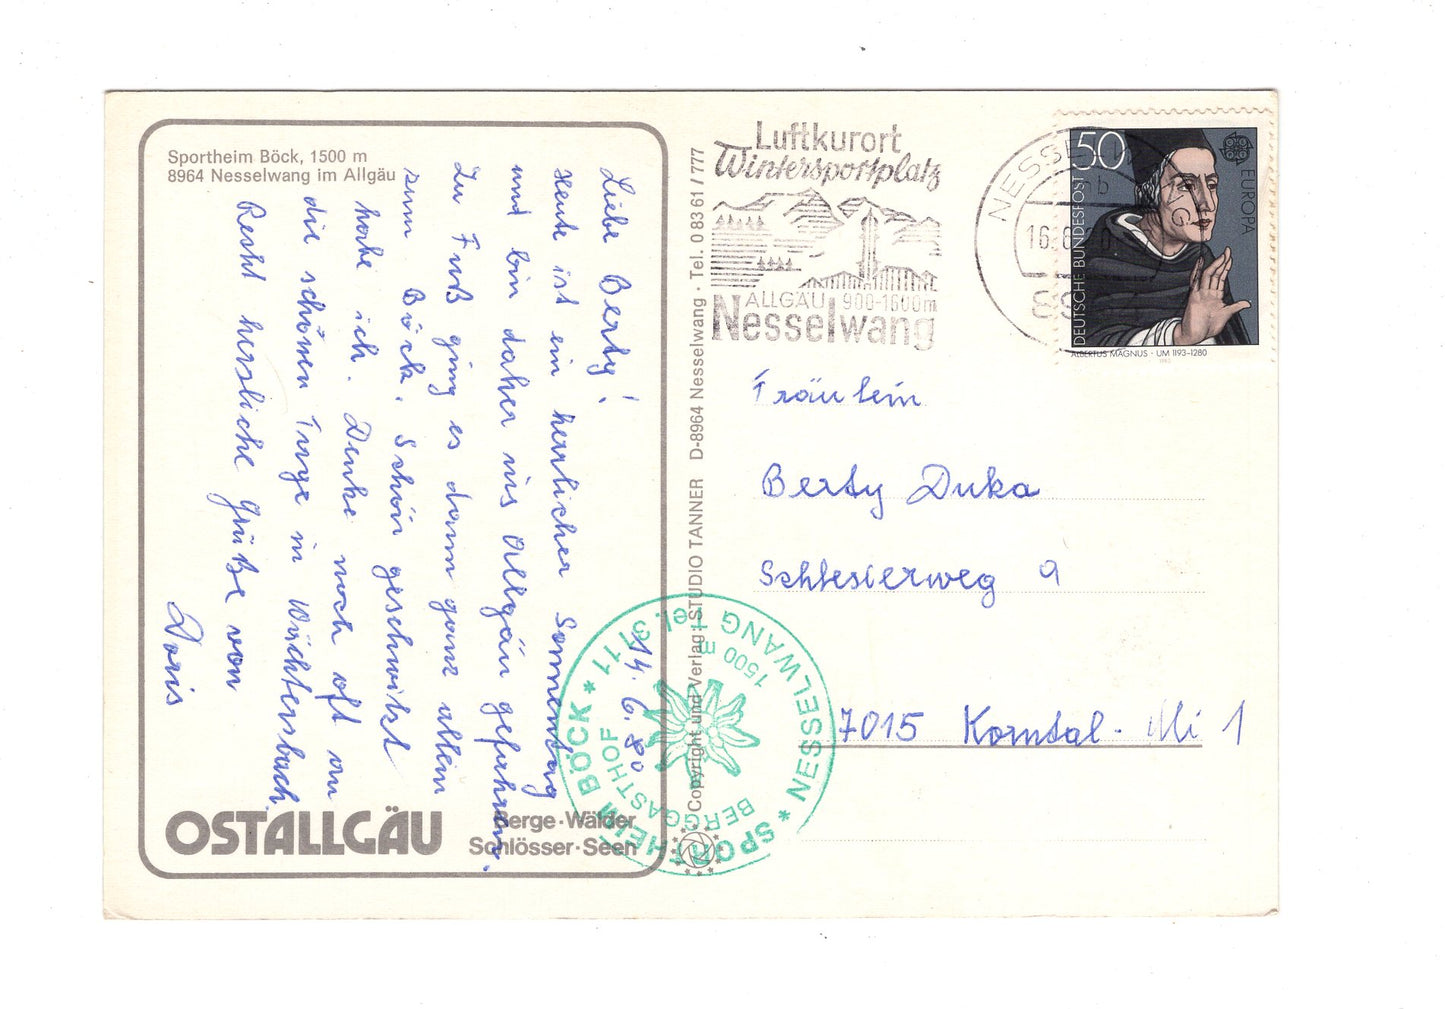 Sportheim Böck, 1500 m
8964 Nesselwang im Allgäu
14. 6. 80
Liebe Berty!
Heute ist ein herrlicher Sonnentag
und bin daher ins Allgäu gefahren.
Zu Fuß ging es dann ganz allein
zum Böck. Schön geschwitzt
habe ich. Denke noch oft an
die schönen Tage in Wächtersbach.
Recht herzliche Grüße von
Doris
OSTALLGÄU
Berge·Wälder
Schlösser·Seen
Copyright und Verlag: STUDIO TANNER D-8964 Nesselwang · Tel. 0 83 61 / 777
Luftkurort
Wintersportplatz
ALLGÄU 900-1600m
Nesselwang
NESSELWANG
b
50
EUROPA
DEUTSCHE BUNDESPOST
ALBERTUS MAGNUS · UM 1193-1280
Fräulein
Berty Duka
Schlesierweg 9
7015 Korntal-Mü 1
* SPORTHEIM BÖCK * NESSELWANG Tel. 3111
BERGGASTHOF
1500 m